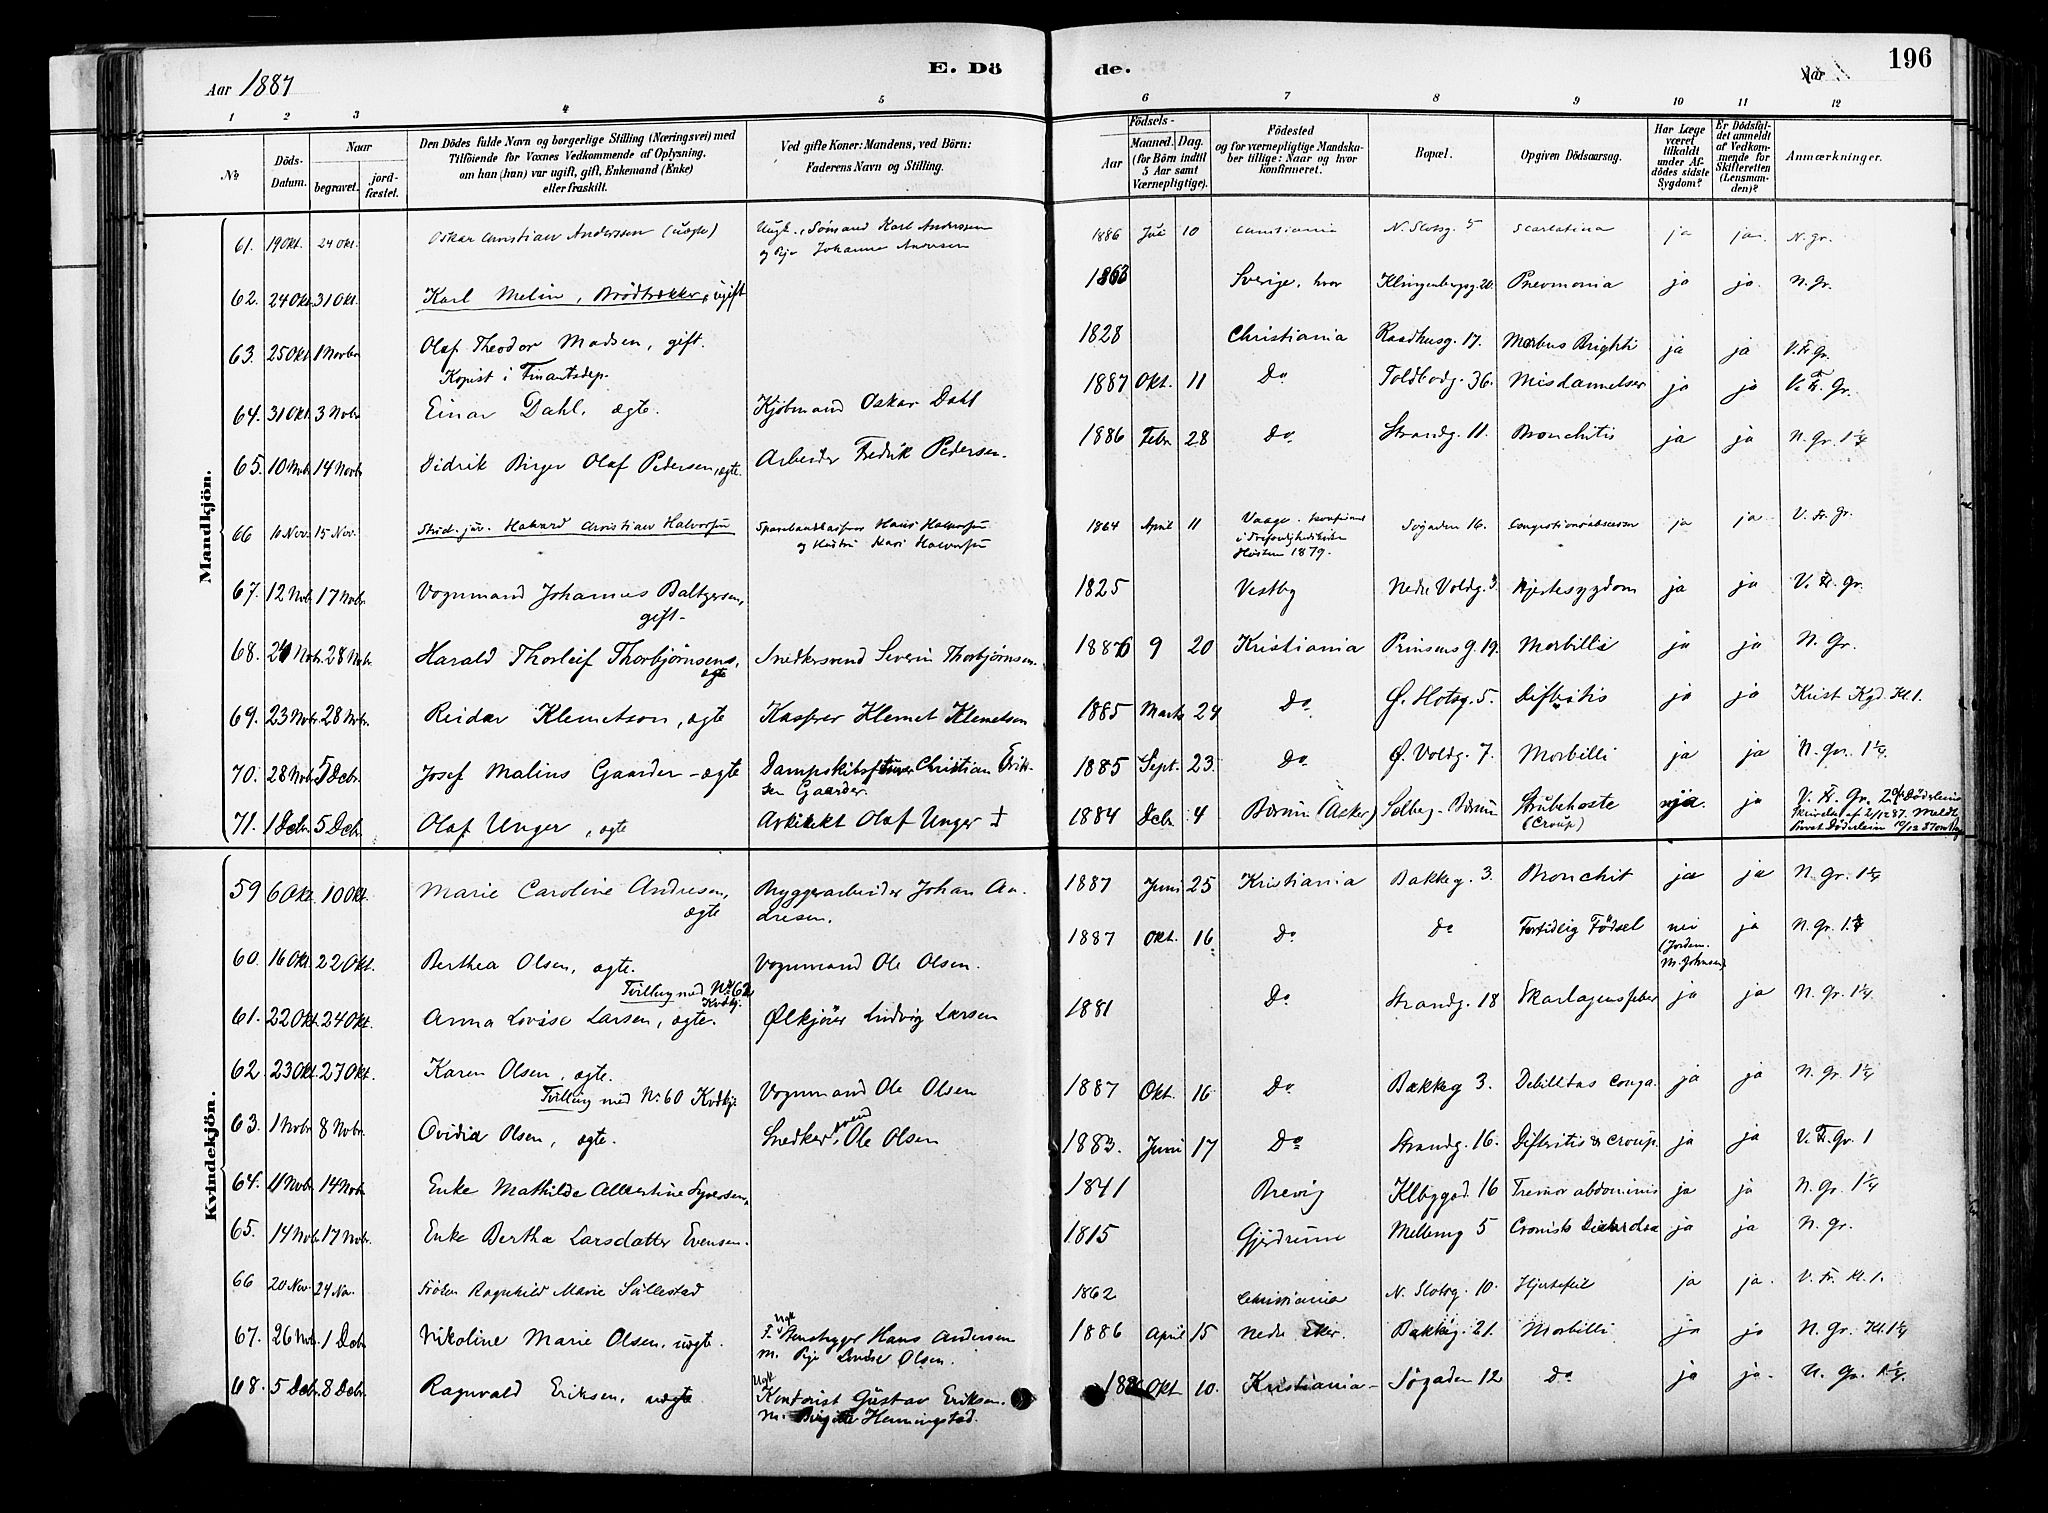 Aar 1887
E. Dö
de.
Aar
196
1 2 3 4 5 6 7 8 9 10 11 12
No
Döds-Datum.
Naar
begravet.
jord-fæstet.
Den Dödes fulde Navn og borgerlige Stilling (Næringsvei) med
Tilföiende for Voxnes Vedkommende af Oplysning,
om han (hun) var ugift, gift, Enkemand (Enke)
eller fraskilt.
Ved gifte Koner: Mandens, ved Börn:
Faderens Navn og Stilling.
Födsels-
Aar
Maaned. Dag.
(for Börn indtil
5 Aar samt
Værnepligtige).
Födested
og for værnepligtige Mandska-
ber tillige: Naar og hvor
konfirmeret.
Bopæl.
Opgiven Dödsaarsag.
Har Læge
været
tilkaldt
under Af-
dödes sidste
Sygdom?
Er Dödsfal-
det anmeldt
af Vedkom-
mende for
Skifteretten
(Lensman-
den)?
Anmærkninger.
Mandkjön.
61. 19 Okt. 24 Okt. Oskar Christian Anderssen (uægte) Ungk. Sømand Karl Anderssen 1886 Juli 10 Christiania N. Slotsg. 5 Scarlatina ja ja. N. gr.
og Pige Johanne Andersen
62. 24 Okt. 31 Okt. Karl Melin, Brødtrækker, ugift 1863 Sverige, hvor Klingenbergg. 20. Pneomonia ja ja. N. Gr.
63. 25 Okt. 1 Novbr. Olaf Theodor Madsen, gift. 1828 Christiania Raadhusg. 17. Morbus Brighti ja ja V. Fr. Gr.
Kopist i Finantsdep.
64. 31 Okt. 3 Novbr. Einar Dahl, ægte. Kjöbmand Oskar Dahl 1887 Okt. 11 Do Toldbodg. 36. Misdannelser ja ja V. Fr. Gr.
65. 10 Novbr. 14 Novbr. Didrik Birger Olaf Pedersen, ægte. Arbeider Fredrik Pedersen. 1886 Febr. 28 Do Strandg. 11. Bronchitis ja ja N. Gr. 1 1/4
66 10 Nov. 15 Nov. Stud. jur. Halvard Christian Halvorsen Hans Halvorsen 1864 April 11 Vaage. Søgaden 16. ja ja. V. Fr. Gr.
og Hustru Kari Halvorsen
Høsten 1879.
67. 12 Novbr. 17 Novbr. Vognmand Johannes Baltzersen, 1825 Vestby Nedre Voldg. 3. Hjertesygdom ja ja V. Fr. Gr.
gift.
68. 21 Novbr. 28 Novbr. Harald Thorleif Thorbjørnsens, Snedkersvend Severin Thorbjørnsen. 1886 9 20 Kristiania Prinsens g. 19. Morbilli ja ja N. Gr.
ægte
69. 23 Novbr. 28 Novbr. Reidar Klemetson, ægte Kasper Klemet Klemetsen 1885 Marts 24 Do Ø. Slotsg. 5. Difteritis ja ja Krist Kgd. Kl. 1.
70. 28 Novbr. 5 Decbr. Josef Malius Gaarder - ægte Dampskibsfører Christian Erik- 1885 Sept. 23. Do Ø. Voldg. 7. Morbilli ja ja N. Gr. 1 1/4
sen Gaarder.
71. 1 Decbr. 5 Decbr. Olaf Unger, ægte Arkitekt Olaf Unger 1884 Decbr. 4 Bærum (Asker) Solberg - Bærum Strubehoste ja. ja V. Fr. Gr.
(Croup)
Kvindekjön.
59 6 Okt. 10 Okt. Marie Caroline Andresen, Bryggerarbeider Johan An- 1887 Juni 25 Kristiania Bakkeg. 3. Bronchit ja ja N. Gr. 1 1/4
ægte dresen.
60. 16 Okt. 22 Okt. Berthea Olsen, ægte. Vognmand Ole Olsen. 1887 Okt. 16 Do Do Fortidlig Födsel nei ja N. Gr. 1 1/4
Tvilling med No 62 Kvdkj. (Jordm. M. Johnsen)
61. 22 Okt. 24 Okt. Anna Lovise Larsen, ægte. Ølkjører Ludvig Larsen 1881 Do Strandg. 18 Skarlagensfeber ja ja N. Gr. 1 1/4
62. 23 Okt. 27 Okt. Karen Olsen, ægte. Vognmand Ole Olsen 1887 Okt. 16 Do Bakkeg 3. Debilitas conga. ja ja N. Gr. 1 1/4
Tvilling med No 60 Kvdkj.
63. 1 Novbr. 8 Novbr. Ovidia Olsen, ægte. Snedkersvend Ole Olsen 1883. Juni 17 Do Strandg. 16. Difteritis & Croup. ja ja V. Fr. Gr. 1
64. 11 Novbr. 14 Novbr. Enke Mathilde Albertine Syversen, 1841 Brevig 16 Tremor abdominis ja ja N. Gr. 1 1/4
65. 14 Novbr. 17 Novbr. Enke Bertha Larsdatter Evensen. 1815 Gjerdrum Mellemg 5 Cronisk ja ja N. Gr.
66 20 Nov. 24 Nov. Frøken Ragnhild Marie 1862 Christiania N. Slotsg. 10. Hjertefeil ja ja. V. Fr. Kl. 1.
67. 26 Novbr. 1 Decbr. Nikoline Marie Olsen, uægte. F. Ungk. Hans Andersen 1886 April 15 Nedre Eker. Bakkeg. 21. Morbilli ja ja N. Gr. Kl. 1 1/4
M. Pige Lovise Olsen.
68. 5 Decbr. 8 Decbr. Ragnvald Eriksen, uægte Ungk. Kontorist Gustav Eriksen. Okt 10. Kristiania - Søgaden 12 Do ja ja. N. Gr. 1 1/4.
M. Birgitte Henningstad.